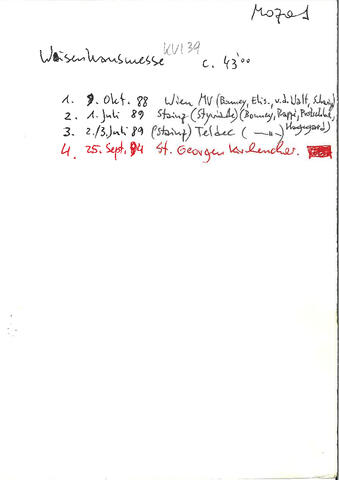 Mozart
Waisenhausmesse KV139 c. 43'00
1. 9. Okt. 88 Wien MV (Bonney, Elis., v.d. Walt,
2. 1. Juli 89 Stainz (Styriarte) (Bonney, Rappé, Protschka, Hagegard)
3. 2./3. Juli 89 (Stainz) Teldec ( —"— )
4. 25. Sept. 94 St. Georgen